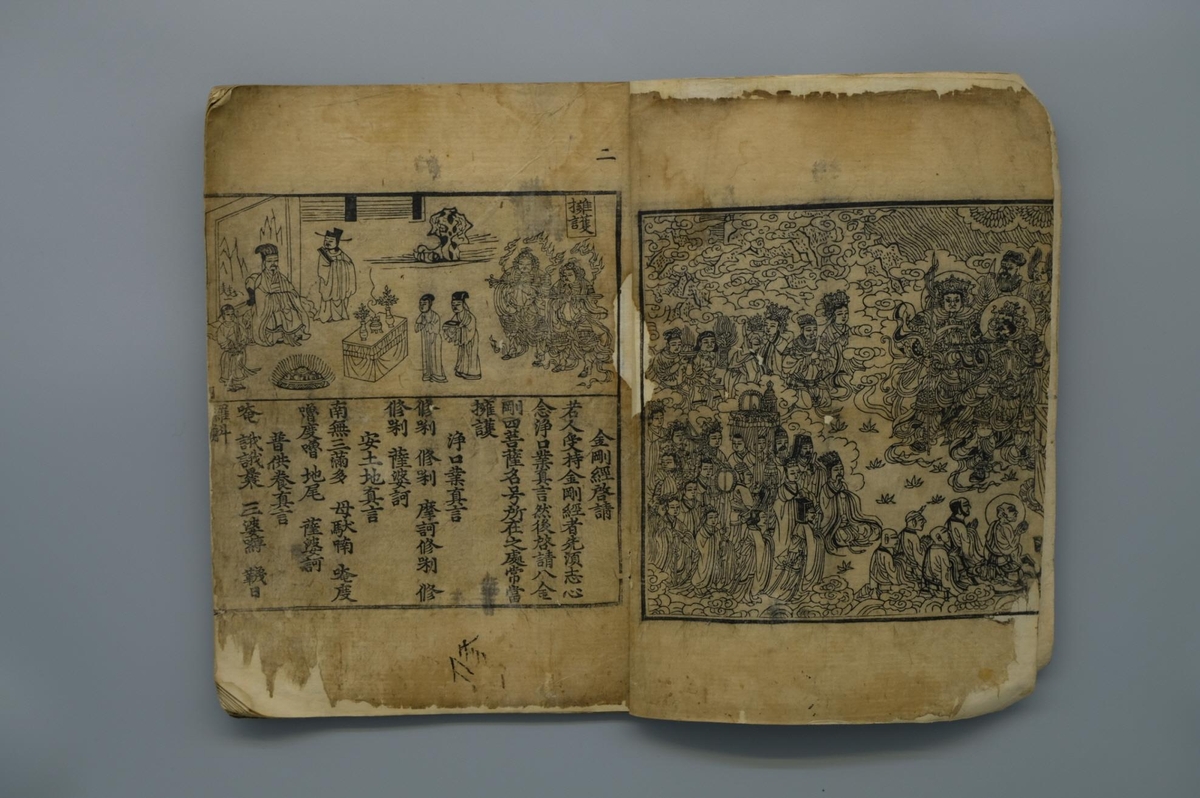 二
擁護
金剛經啓請
若人受持金剛經者先須志心
念淨口業真言然後啓請八金
剛四菩薩名号所在之處常當
擁護
淨口業真言
修唎 修唎 摩訶修唎 修
修唎 薩婆訶
安土地真言
南無三滿多 母䭾喃 唵度
嚕度嚕 地尾 薩婆訶
普供養真言
唵 誐誐曩 三婆嚩 韈日